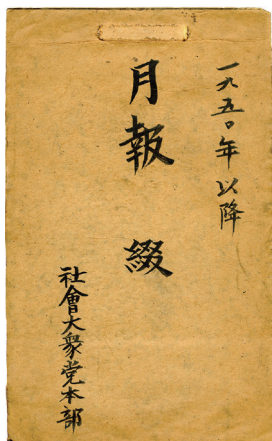 一九五〇年以降
月報綴
社會大衆党本部